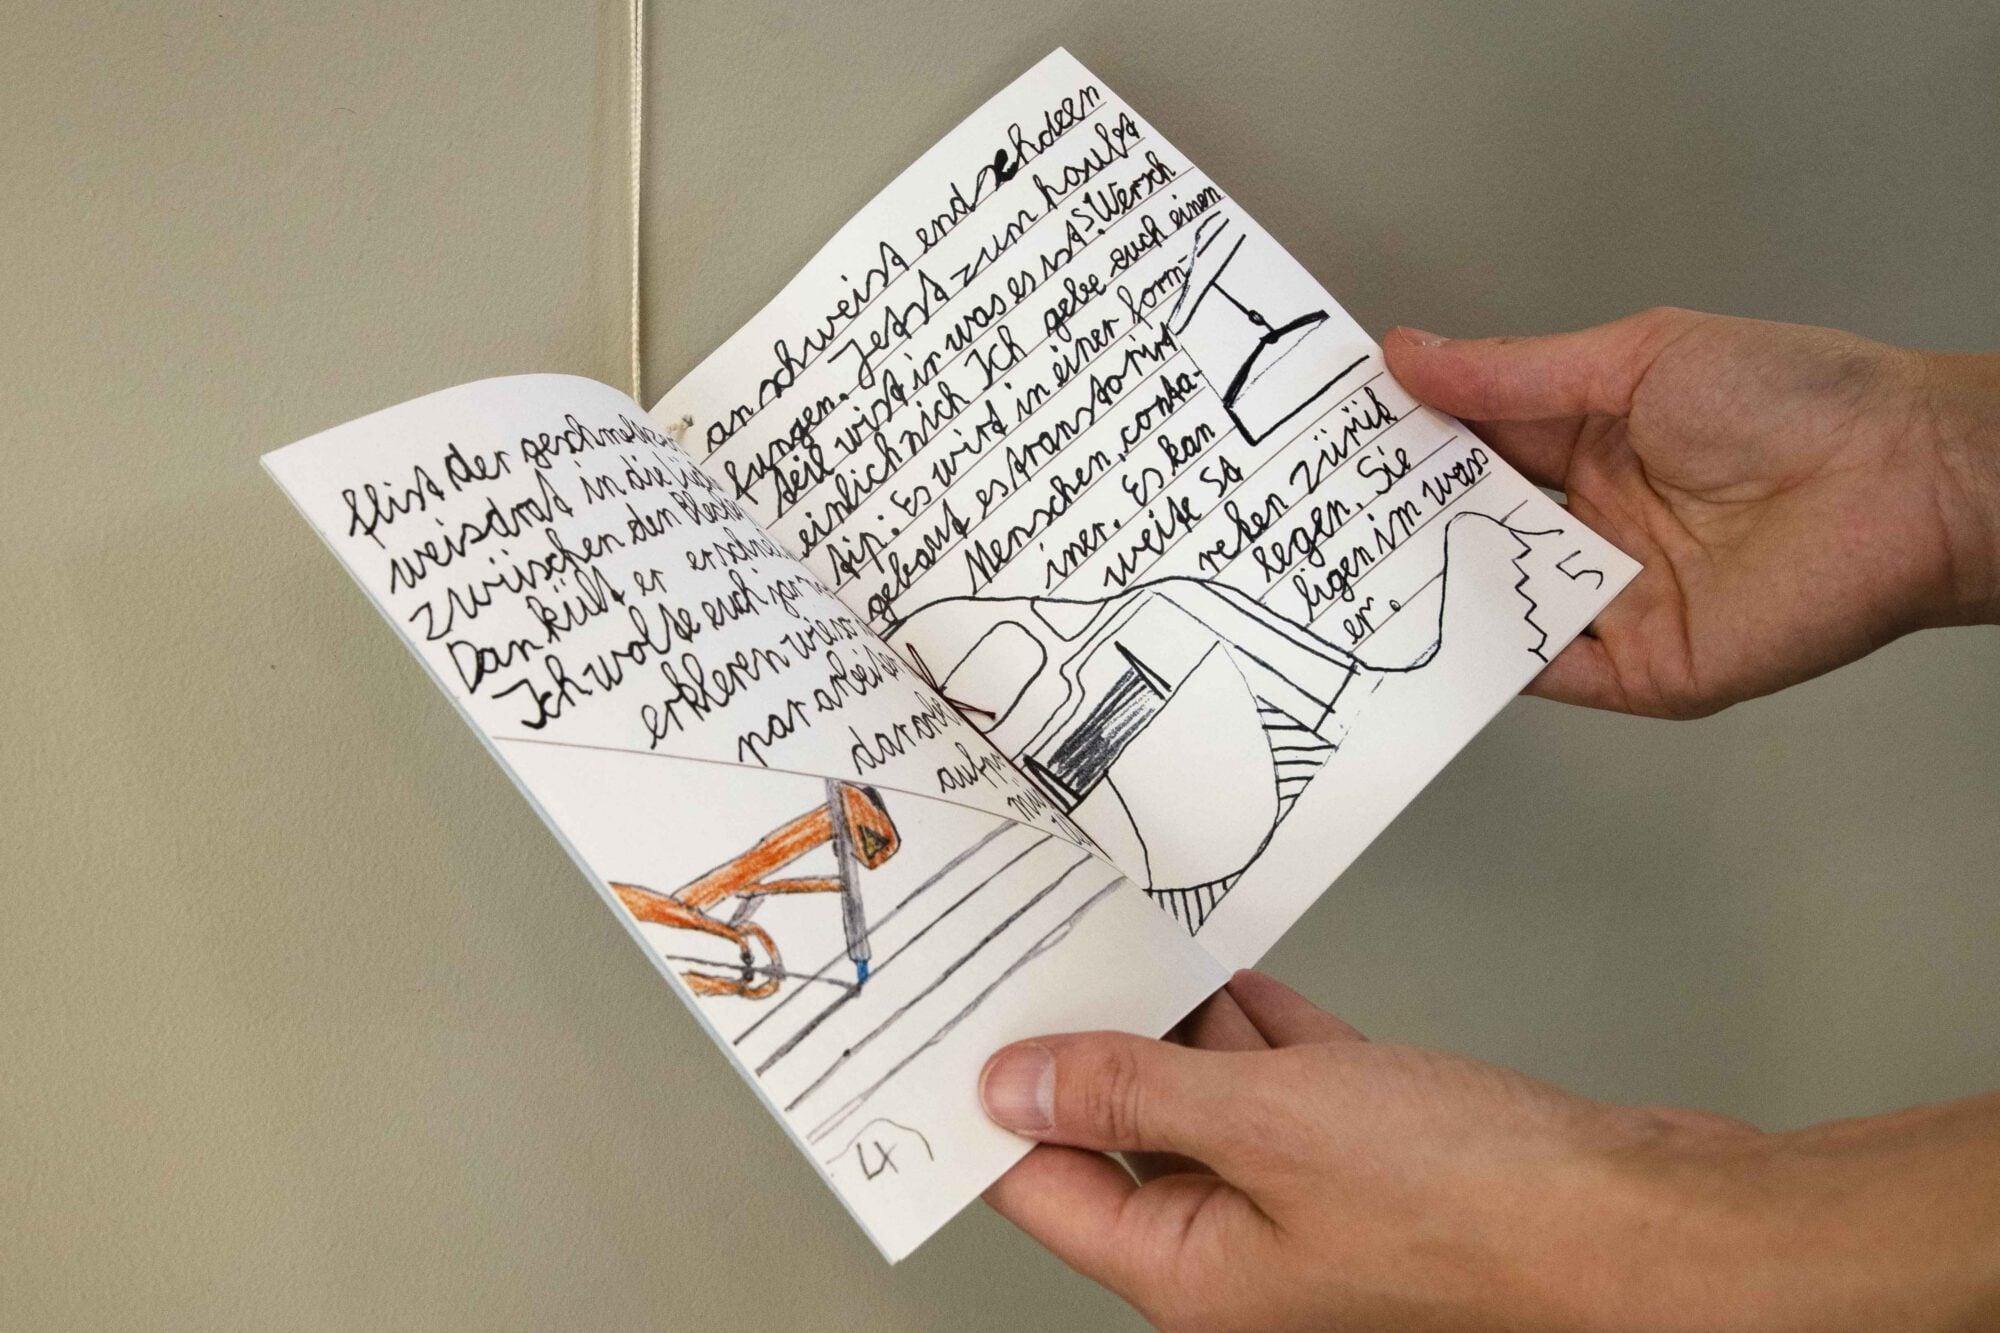 flist der geschmelz
weisdrat in die lü
zwischen den Blech
Dan kült er
Ich wolte euch
erkleren wieso
par arbeiten
daran
auf
4
an schweist endschdeen
fungen. Jetst zum haubt
teil wist ir was es ist? Wersch
einlich nich Ich gebe euch einen
tip: Es wird in einer form
gebaut es transtorirt
Menschen, conta-
iner. Es kan
weite St
reken zürük
legen. Sie
ligen im wass
er.
5